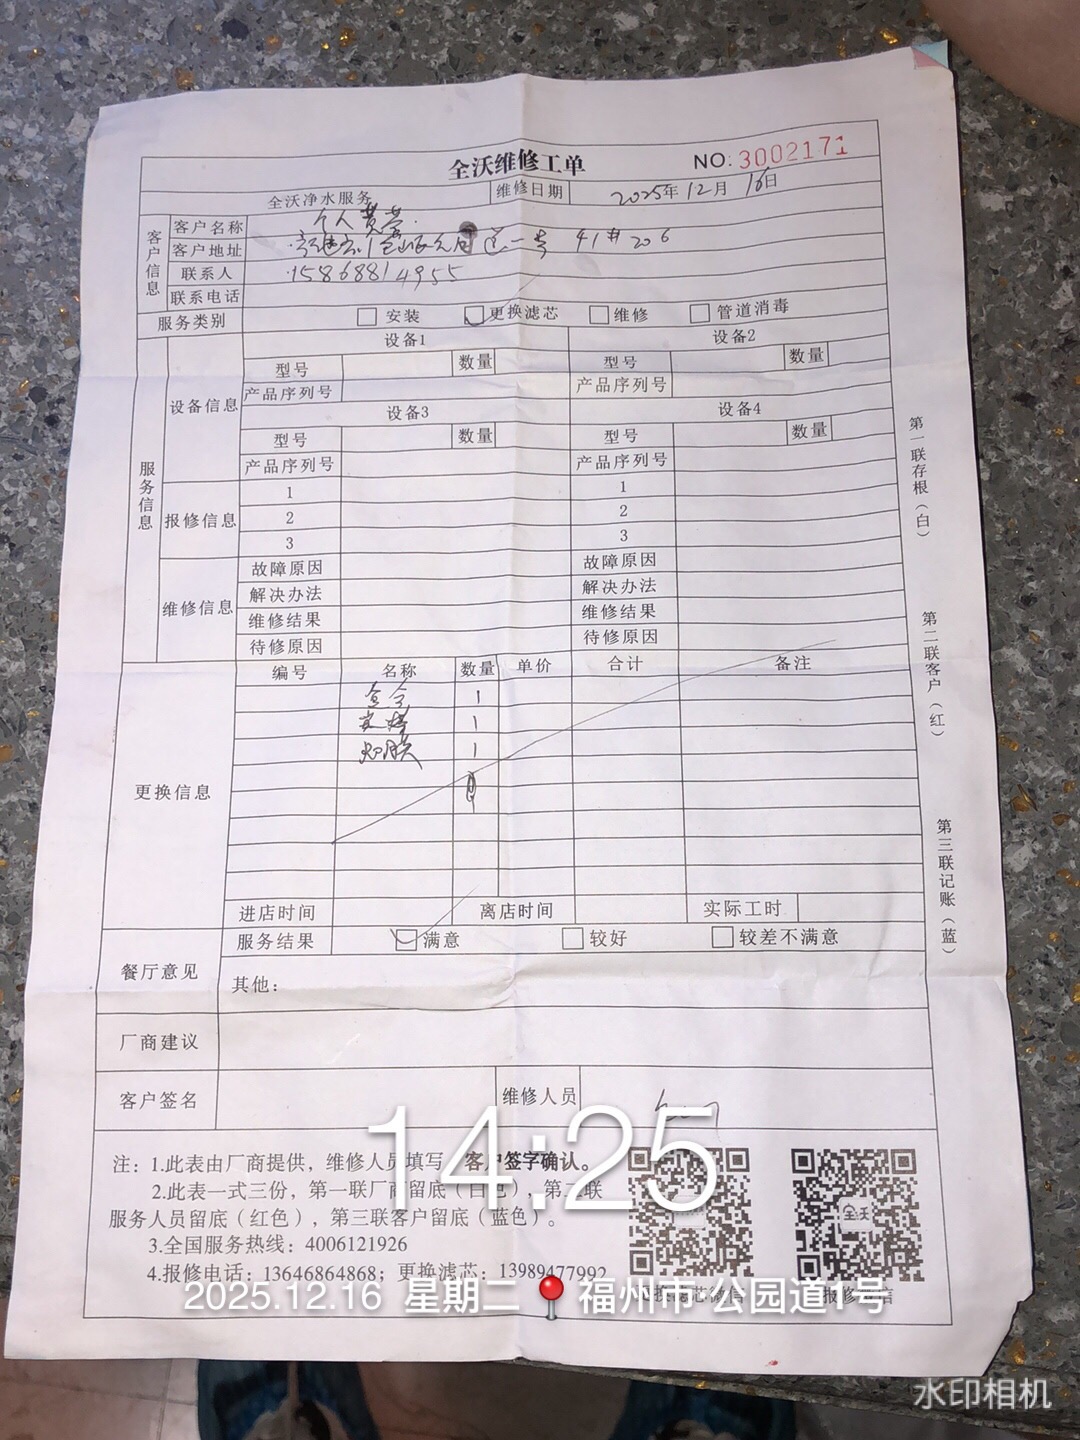 全沃维修工单
NO: 3002171
全沃净水服务 维修日期 2025年12月16日
客户信息
客户名称 个人黄莹
客户地址 一号 41#206
联系人 15868814955
联系电话
服务类别 安装 更换滤芯 维修 管道消毒
服务信息
设备信息
设备1 设备2
型号 数量 型号 数量
产品序列号 产品序列号
设备3 设备4
型号 数量 型号 数量
产品序列号 产品序列号
报修信息
1 1
2 2
3 3
维修信息
故障原因 故障原因
解决办法 解决办法
维修结果 维修结果
待修原因 待修原因
更换信息
编号 名称 数量 单价 合计 备注
1
1
1
进店时间 离店时间 实际工时
餐厅意见
服务结果 满意 较好 较差不满意
其他：
厂商建议
客户签名 维修人员
注：1.此表由厂商提供，维修人员填写，客户签字确认。
2.此表一式三份，第一联厂商留底（白色），第二联
服务人员留底（红色），第三联客户留底（蓝色）。
3.全国服务热线：4006121926
4.报修电话：13646864868；更换滤芯：13989477992
更换滤芯微信 报修微信
全沃
第一联存根（白）
第二联客户（红）
第三联记账（蓝）
14:25
2025.12.16 星期二 福州市·公园道1号
水印相机